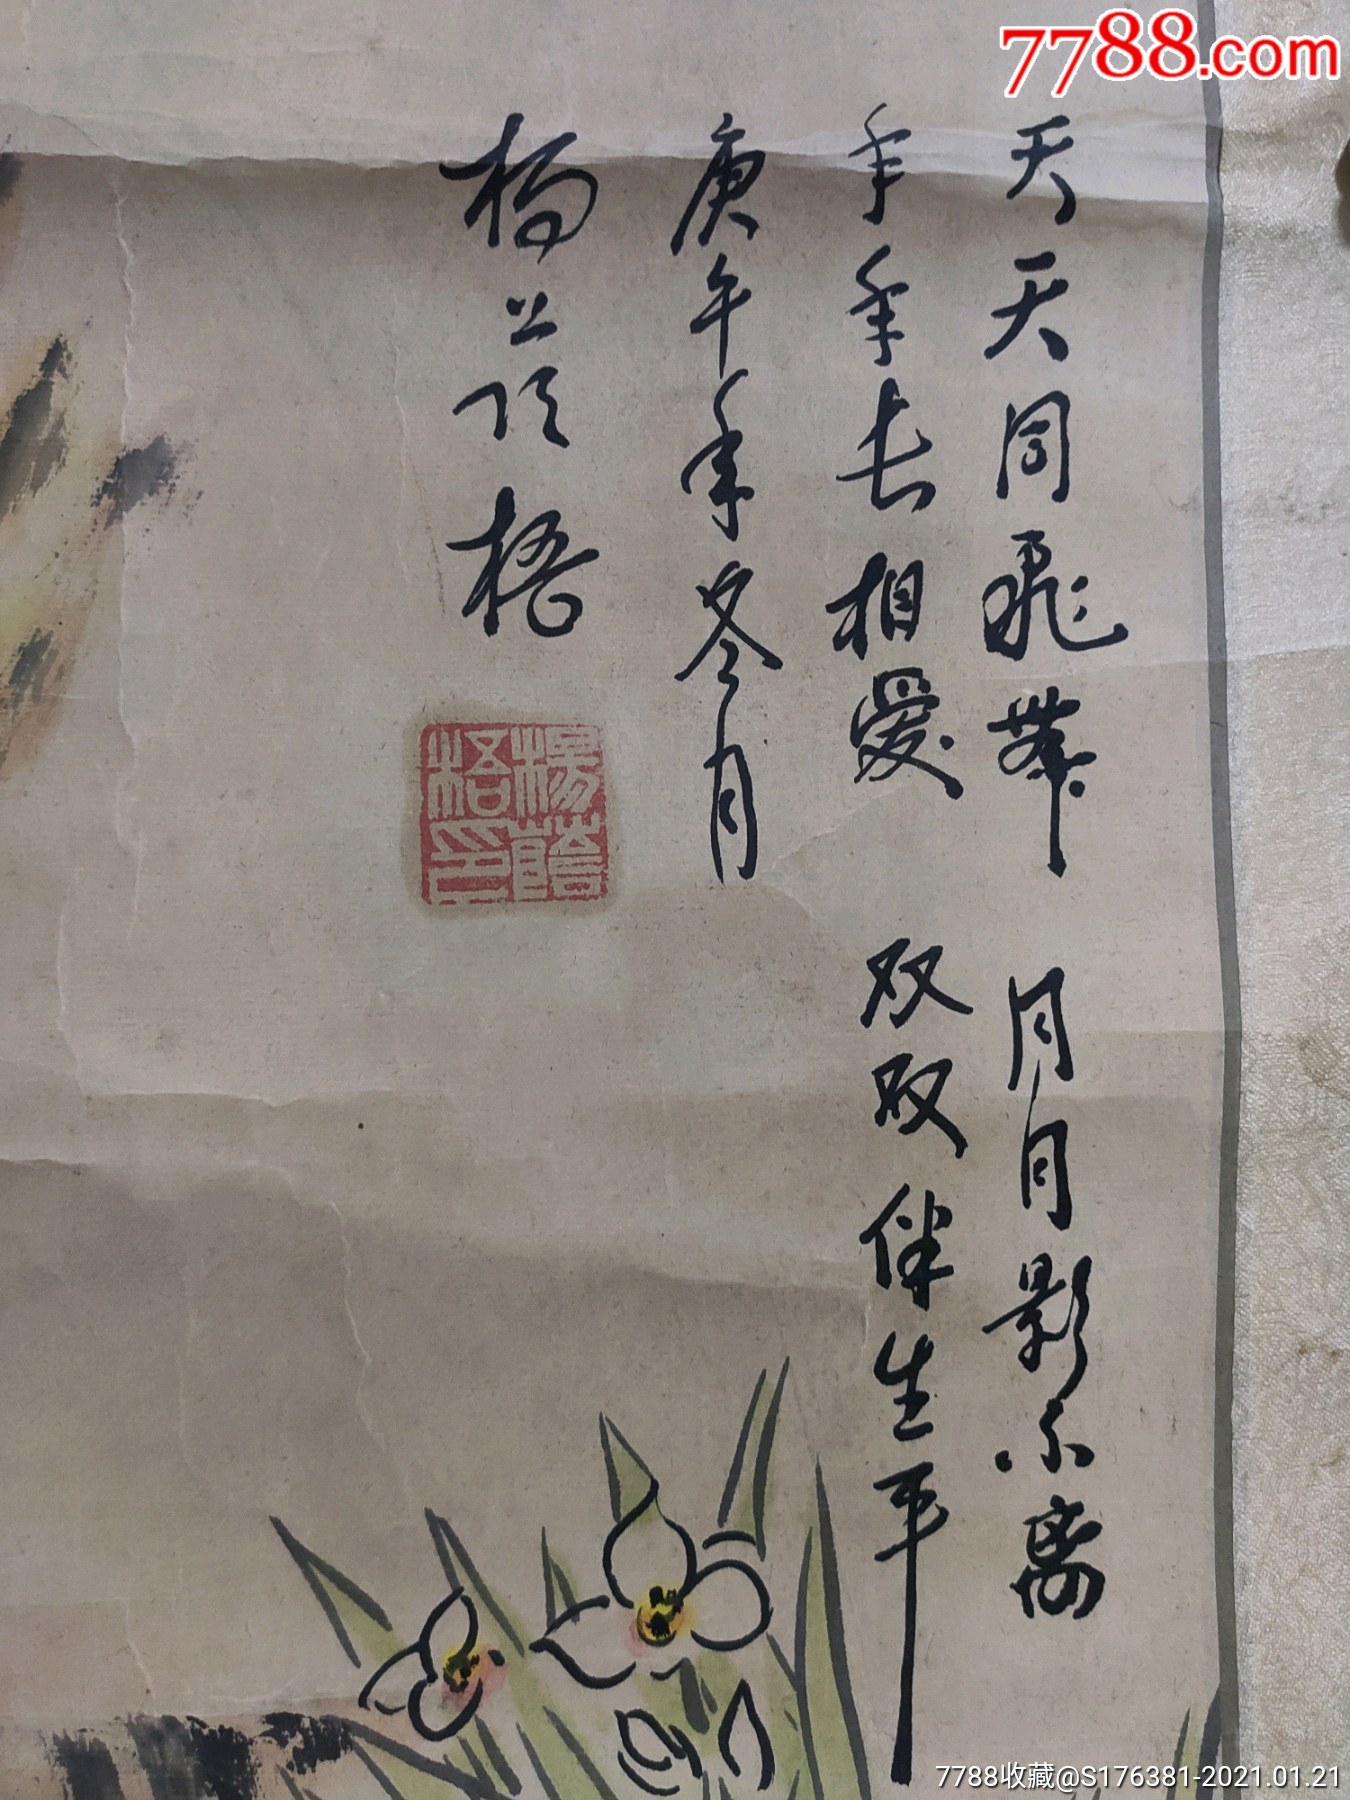 7788.com
天天同飛舞 月月影不离
年年长相愛 双双伴生平
庚午年冬月
杨 梧
楊 印
7788收藏@S176381-2021.01.21